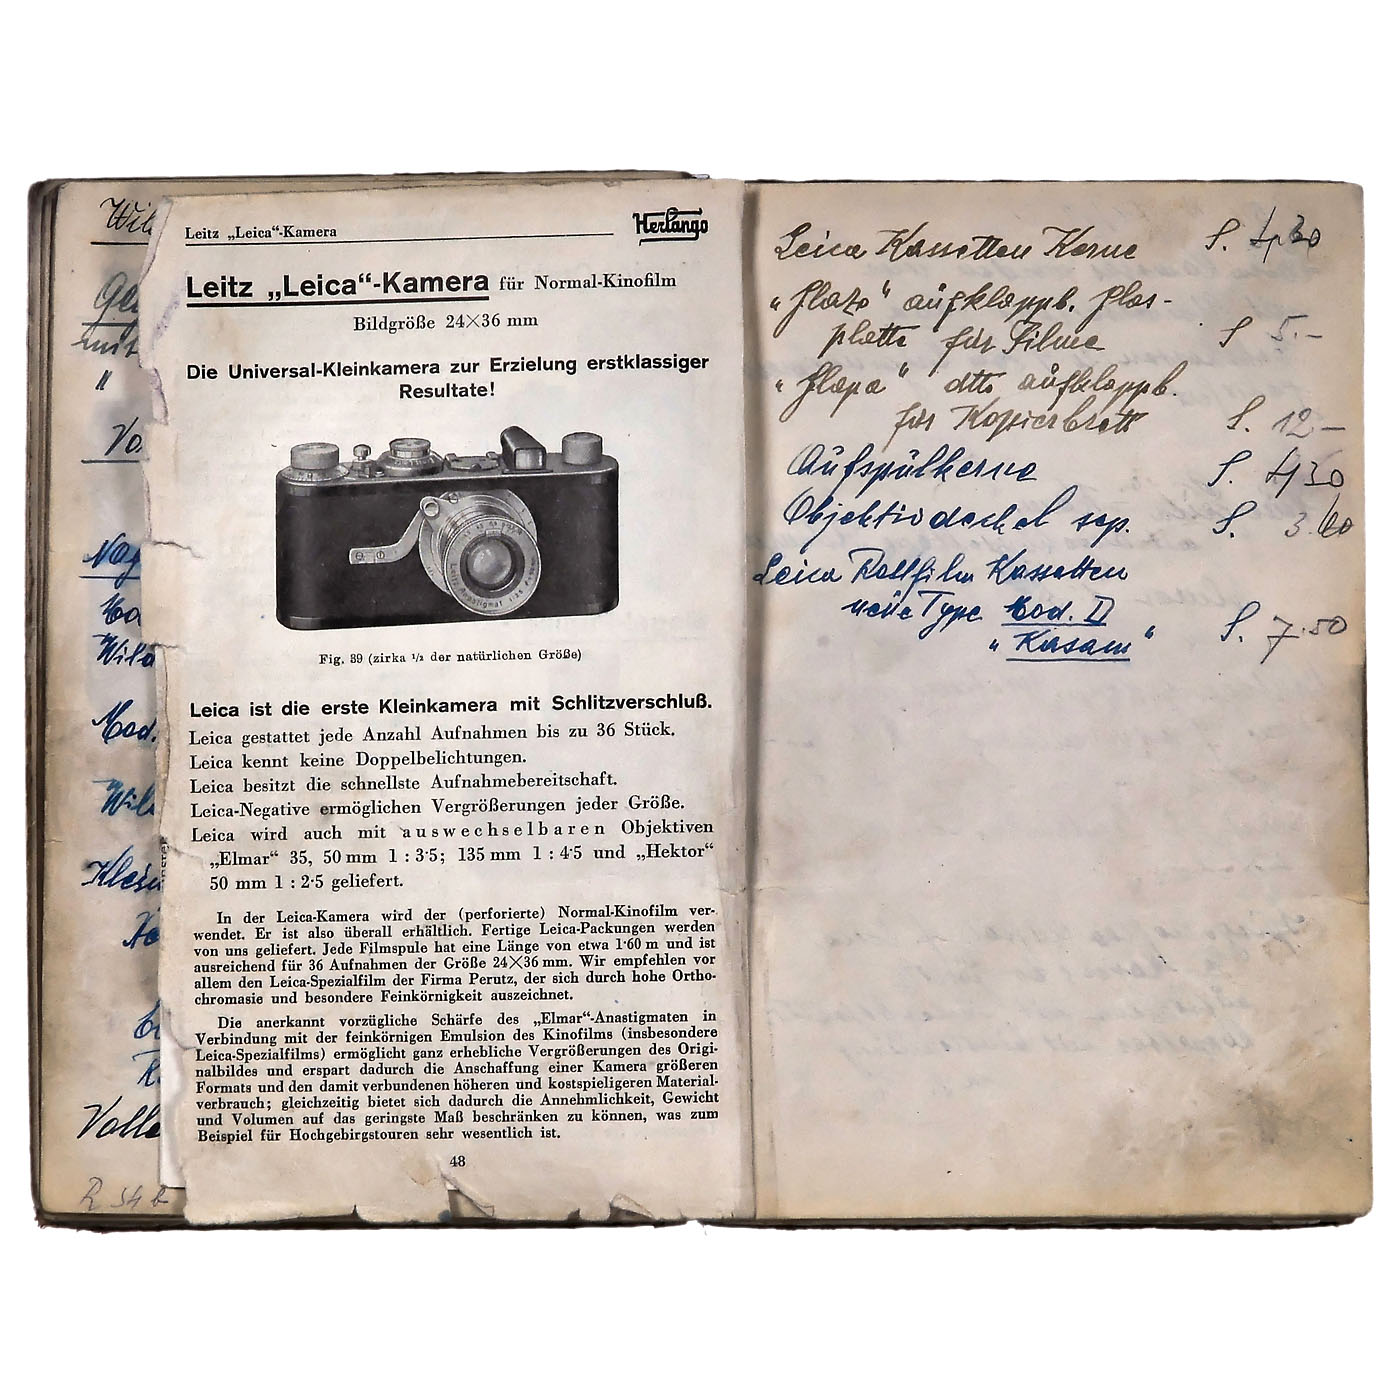 Leitz „Leica“-Kamera
Herlango
Leitz „Leica“-Kamera für Normal-Kinofilm
Bildgröße 24×36 mm
Die Universal-Kleinkamera zur Erzielung erstklassiger
Resultate!
Fig. 39 (zirka ½ der natürlichen Größe)
Leica ist die erste Kleinkamera mit Schlitzverschluß.
Leica gestattet jede Anzahl Aufnahmen bis zu 36 Stück.
Leica kennt keine Doppelbelichtungen.
Leica besitzt die schnellste Aufnahmebereitschaft.
Leica-Negative ermöglichen Vergrößerungen jeder Größe.
Leica wird auch mit auswechselbaren Objektiven
„Elmar“ 35, 50 mm 1 : 3·5; 135 mm 1 : 4·5 und „Hektor“
50 mm 1 : 2·5 geliefert.
In der Leica-Kamera wird der (perforierte) Normal-Kinofilm ver-
wendet. Er ist also überall erhältlich. Fertige Leica-Packungen werden
von uns geliefert. Jede Filmspule hat eine Länge von etwa 1·60 m und ist
ausreichend für 36 Aufnahmen der Größe 24×36 mm. Wir empfehlen vor
allem den Leica-Spezialfilm der Firma Perutz, der sich durch hohe Ortho-
chromasie und besondere Feinkörnigkeit auszeichnet.
Die anerkannt vorzügliche Schärfe des „Elmar“-Anastigmaten in
Verbindung mit der feinkörnigen Emulsion des Kinofilms (insbesondere
Leica-Spezialfilms) ermöglicht ganz erhebliche Vergrößerungen des Origi-
nalbildes und erspart dadurch die Anschaffung einer Kamera größeren
Formats und den damit verbundenen höheren und kostspieligeren Material-
verbrauch; gleichzeitig bietet sich dadurch die Annehmlichkeit, Gewicht
und Volumen auf das geringste Maß beschränken zu können, was zum
Beispiel für Hochgebirgstouren sehr wesentlich ist.
48
Leica Kassetten Kerne S.
„ aufklappb. Glas-
platte für Filme S 5.-
„ dtto aufklappb.
für Kopierbrett S. 12-
Aufspülkerne S. 4,30
Objektivdeckel sep. S. 3.60
Leica Rollfilm Kassetten
neue Type Mod. II
„Kasam“ S. 7.50